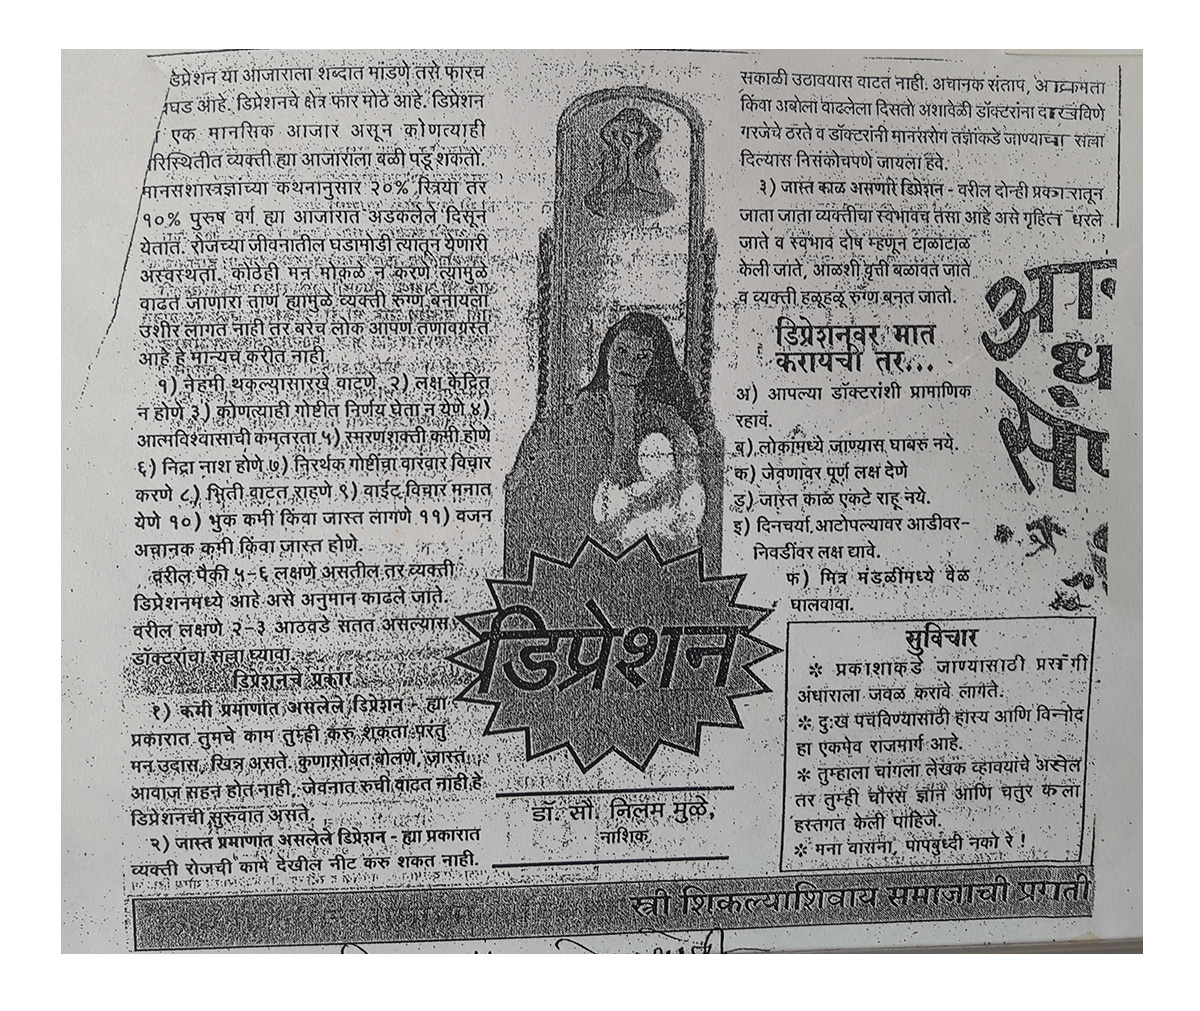 डिप्रेशन या आजाराला शब्दात मांडणे तसे फारच
आहे. डिप्रेशनचे क्षेत्र फार मोठे आहे. डिप्रेशन
एक मानसिक आजार असून कोणत्याही
व्यक्ती ह्या आजाराला बळी पडू शकतो.
मानसशास्त्रज्ञांच्या कथनानुसार २०% स्त्रिया तर
१०% पुरुष वर्ग ह्या आजारात अडकलेले दिसून
येतात. रोजच्या जीवनातील घडामोडी त्यातून येणारी
अस्वस्थता. कोठेही मन मोकळे न करणे त्यामुळे
वाढत जाणारा ताण ह्यामुळे व्यक्ती रुग्ण बनायला
उशीर लागत नाही तर बरेच लोक आपण तणावग्रस्त
आहे हे मान्यच करीत नाही.
१) नेहमी थकल्यासारखे वाटणे. २) लक्ष केंद्रित
न होणे ३) कोणत्याही गोष्टीत निर्णय घेता न येणे ४)
आत्मविश्वासाची कमतरता ५) स्मरणशक्ती कमी होणे
६) निद्रा नाश होणे ७) निरर्थक गोष्टींचा वारंवार विचार
करणे ८) भिती वाटत राहणे ९) वाईट विचार मनात
येणे १०) भुक कमी किंवा जास्त लागणे ११) वजन
अचानक कमी किंवा जास्त होणे.
वरील पैकी ५-६ लक्षणे असतील तर व्यक्ती
डिप्रेशनमध्ये आहे असे अनुमान काढले जाते.
वरील लक्षणे २-३ आठवडे सतत असल्यास
डॉक्टरांचा सल्ला घ्यावा.
डिप्रेशनचे प्रकार
१) कमी प्रमाणात असलेले डिप्रेशन - ह्या
प्रकारात तुमचे काम तुम्ही करु शकता परंतु
मन उदास, खिन्न असते. कुणासोबत बोलणे, जास्त
आवाज सहन होत नाही, जेवनात रुची वाटत नाही हे
डिप्रेशनची सुरुवात असते.
२) जास्त प्रमाणात असलेले डिप्रेशन - ह्या प्रकारात
व्यक्ती रोजची कामे देखील नीट करु शकत नाही.
डिप्रेशन
डॉ. सौ. निलम मुळे,
नाशिक.
सकाळी उठावयास वाटत नाही. अचानक संताप, आक्रमता
किंवा अबोला वाढलेला दिसतो अशावेळी डॉक्टरांना दाखविणे
गरजेचे ठरते व डॉक्टरांनी मानसरोग तज्ञांकडे जाण्याचा सल्ला
दिल्यास निसंकोचपणे जायला हवे.
३) जास्त काळ असणारे डिप्रेशन - वरील दोन्ही प्रकारातून
जाता जाता व्यक्तीचा स्वभावच तसा आहे असे गृहित धरले
जाते व स्वभाव दोष म्हणून टाळाटाळ
केली जाते, आळशी वृत्ती बळावत जाते
व व्यक्ती हळूहळू रुग्ण बनत जातो.
डिप्रेशनवर मात
करायची तर...
अ) आपल्या डॉक्टरांशी प्रामाणिक
रहावं.
ब) लोकांमध्ये जाण्यास घाबरु नये.
क) जेवणावर पूर्ण लक्ष देणे
ड) जास्त काळ एकटे राहू नये.
इ) दिनचर्या आटोपल्यावर आडीवर-
निवडींवर लक्ष द्यावे.
फ) मित्र मंडळींमध्ये वेळ
घालवावा.
सुविचार
❇ प्रकाशाकडे जाण्यासाठी प्रसंगी
अंधाराला जवळ करावे लागते.
❇ दुःख पचविण्यासाठी हास्य आणि विनोद
हा एकमेव राजमार्ग आहे.
❇ तुम्हाला चांगला लेखक व्हावयाचे असेल
तर तुम्ही चौरस ज्ञान आणि चतुर कला
हस्तगत केली पाहिजे.
❇ मना वासना, पापबुध्दी नको रे !
स्त्री शिकल्याशिवाय समाजाची प्रगती